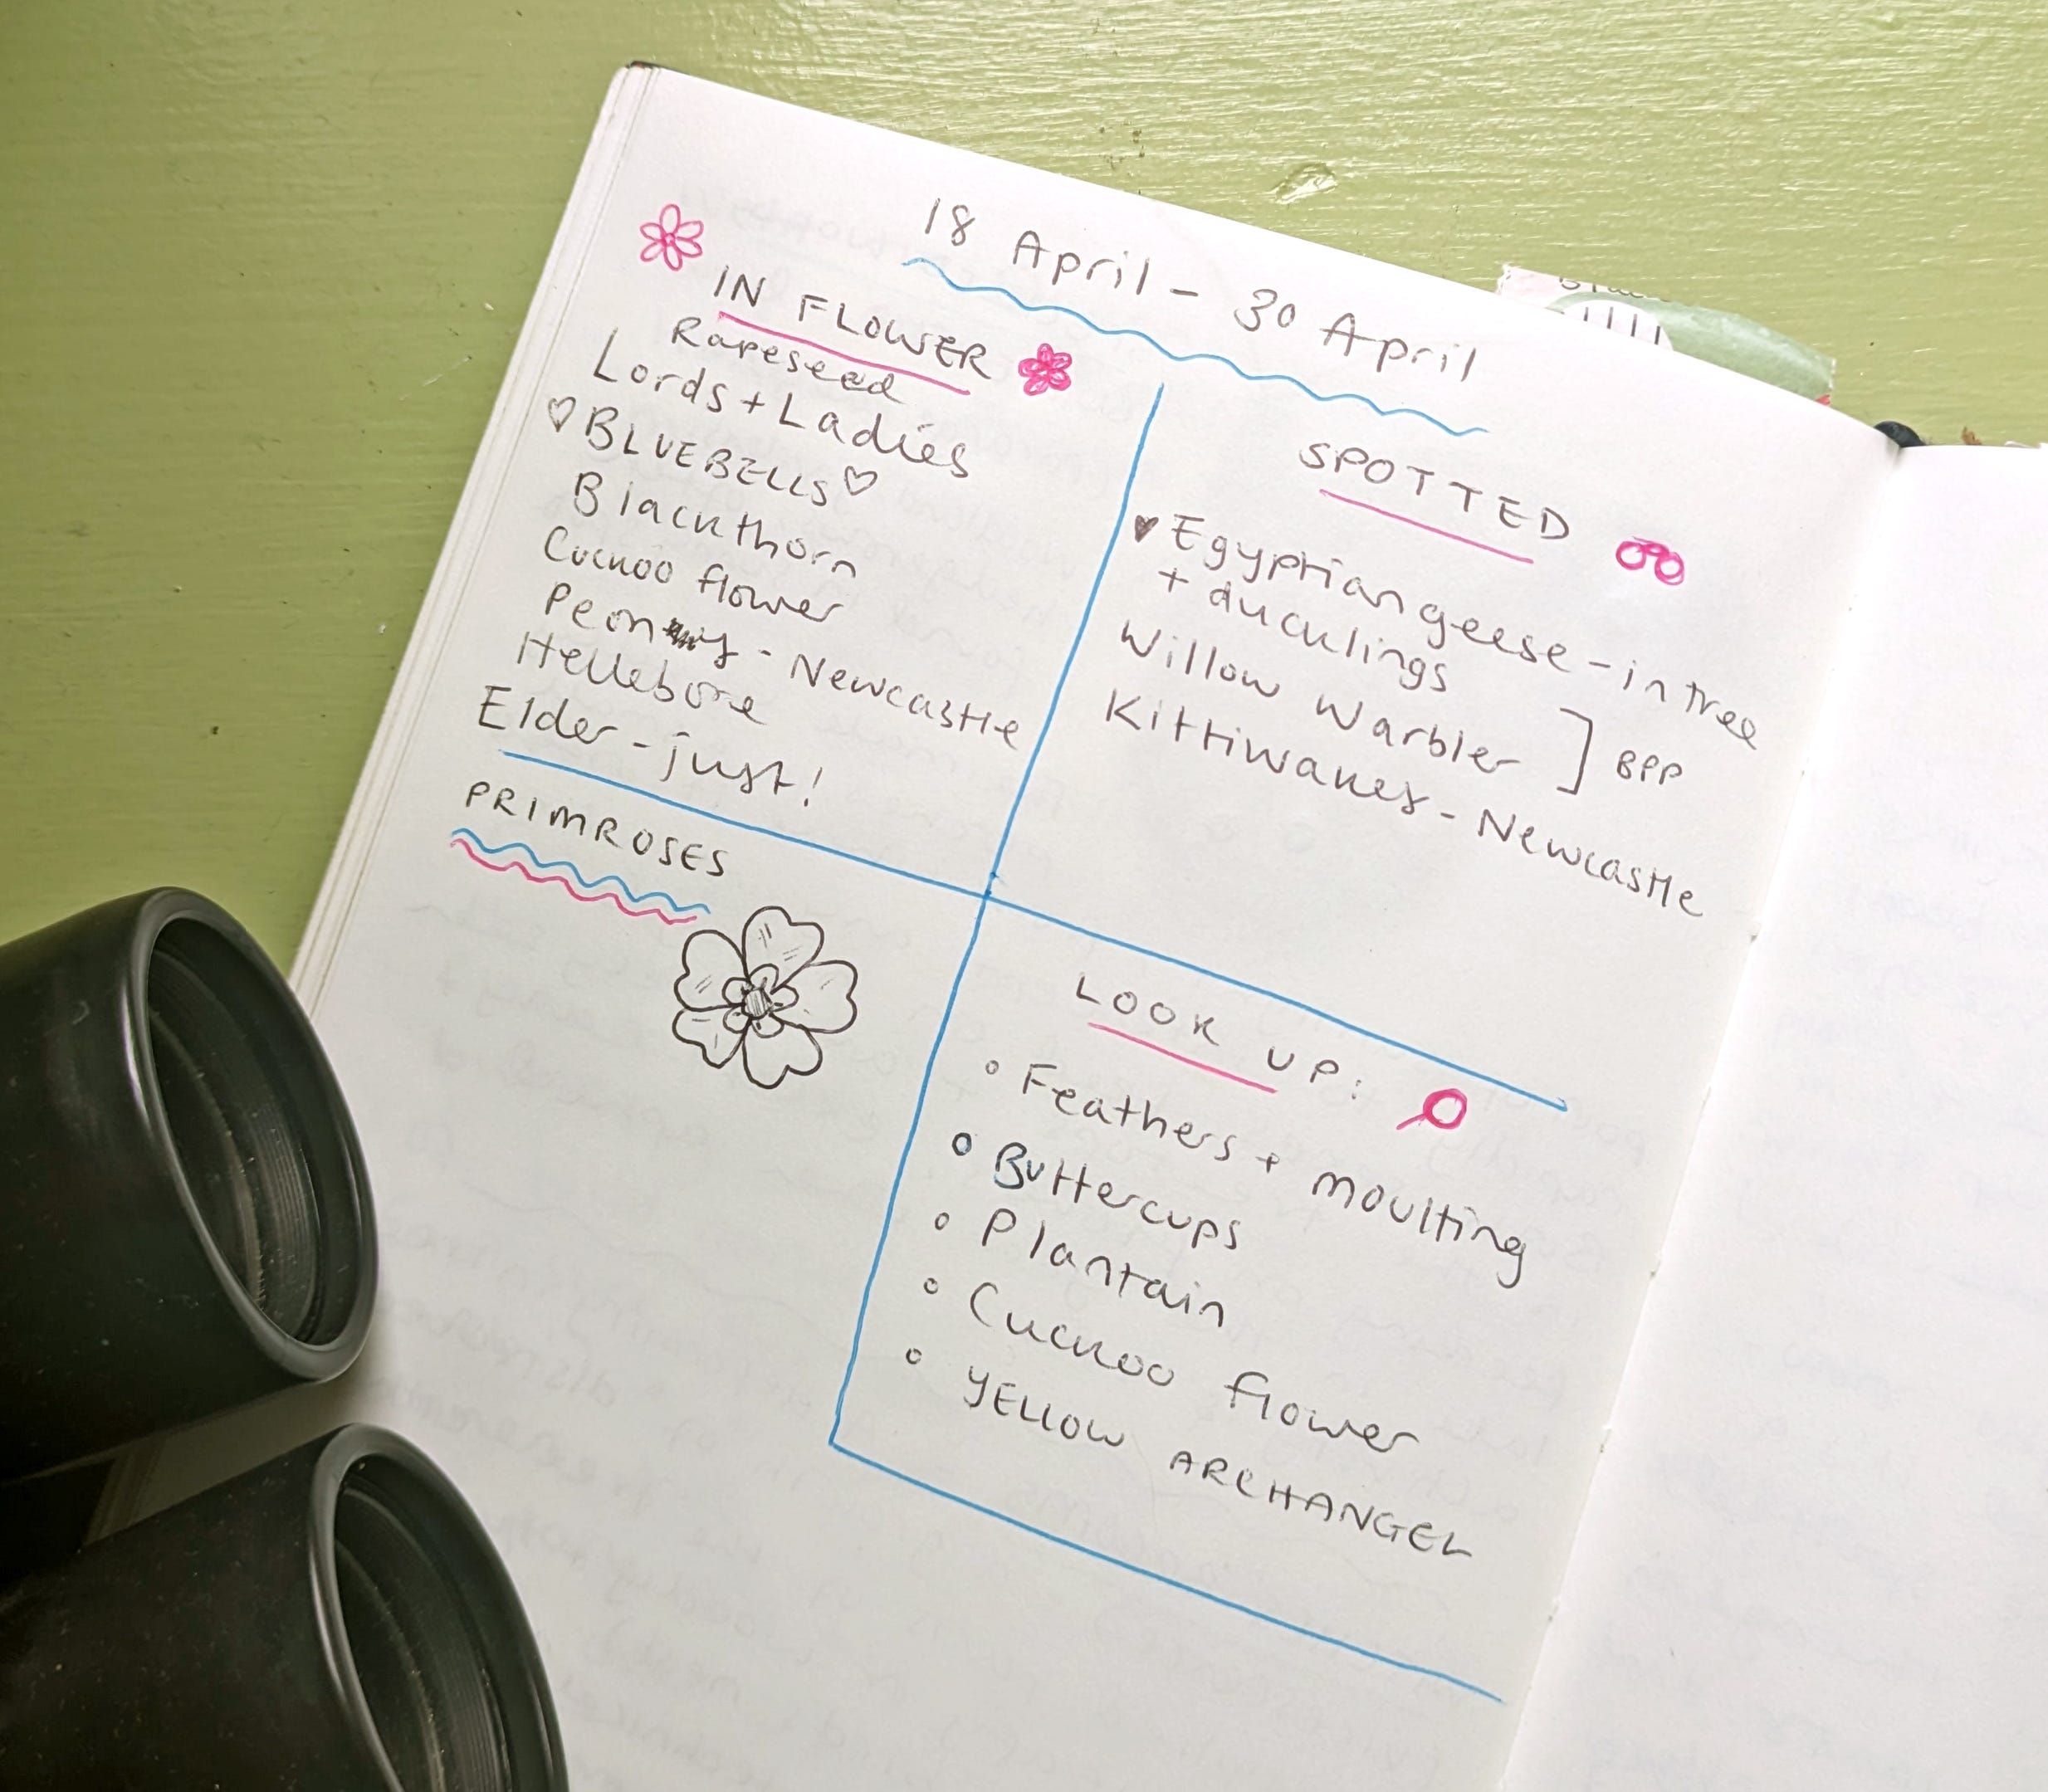 18 April - 30 April
IN FLOWER
Rapeseed
Lords + Ladies
♡ BLUEBELLS ♡
Blackthorn
Cuckoo flower
Peony - Newcastle
Hellebore
Elder - just!
SPOTTED
♥ Egyptian geese - in tree
+ duckulings
Willow Warbler ] BPP
Kittiwakes - Newcastle
PRIMROSES
LOOK UP:
◦ Feathers + moulting
◦ Buttercups
◦ Plantain
◦ Cuckoo flower
◦ YELLOW ARCHANGEL